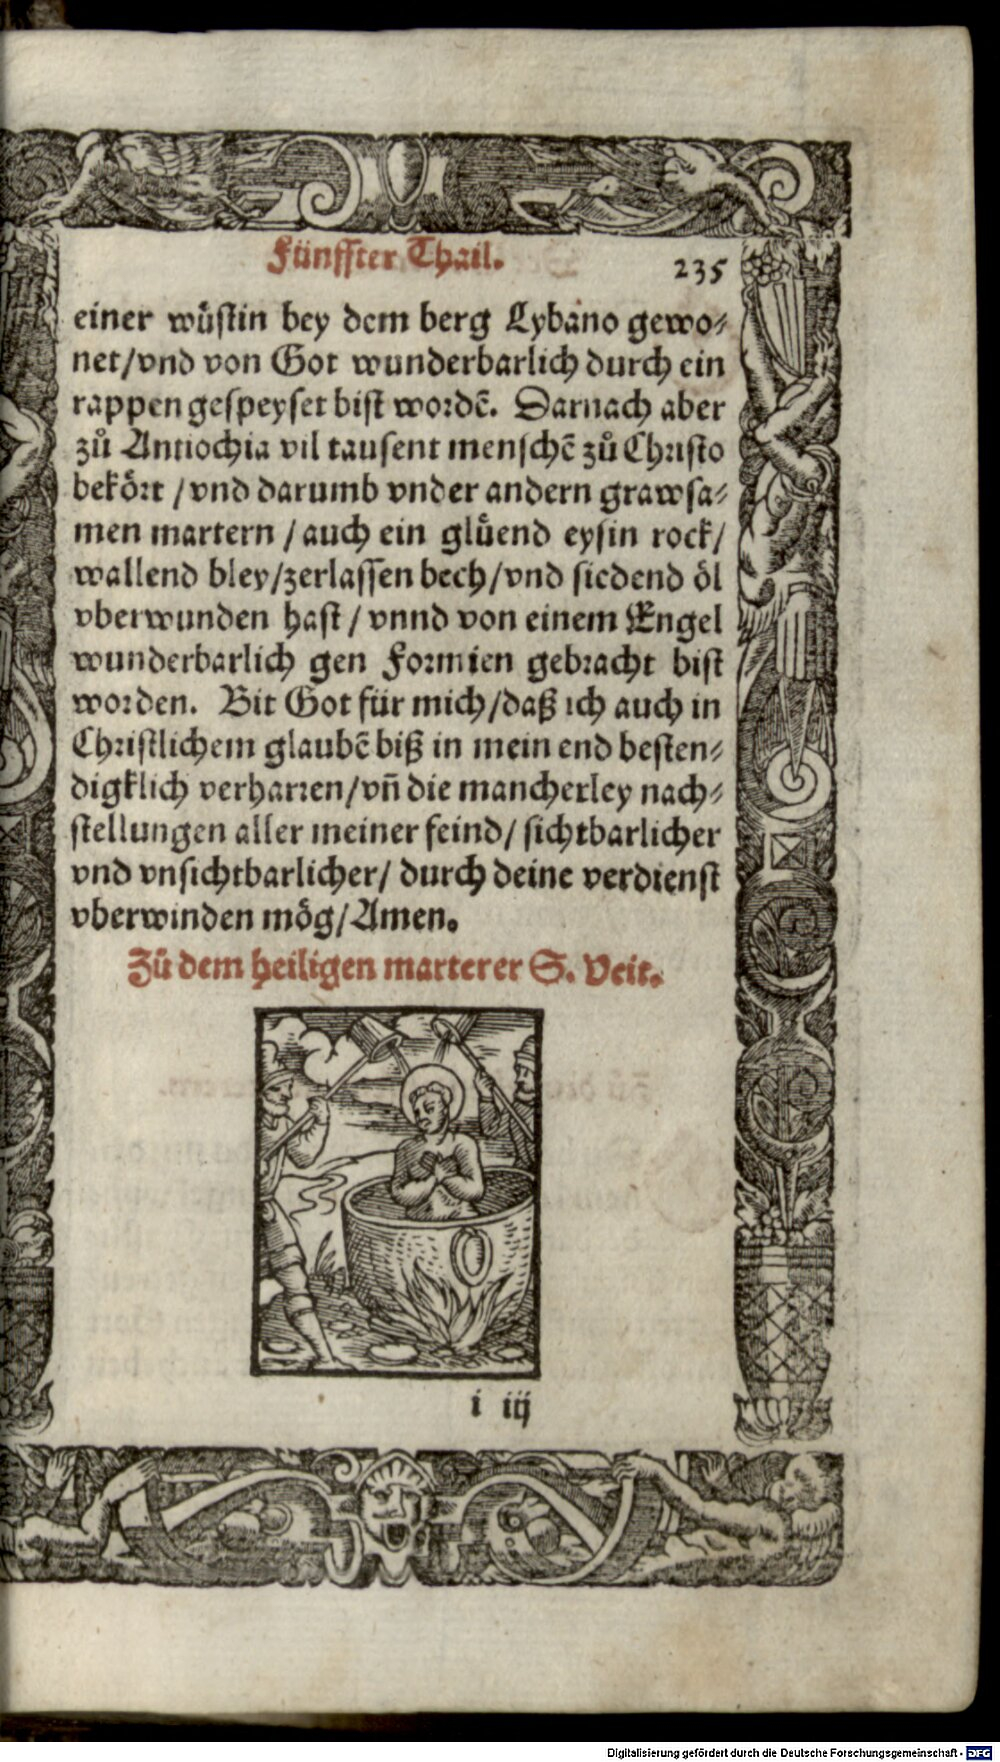 Fünffter Thail.
235
einer wuͤstin bey dem berg Lybano gewo⸗
net/vnd von Got wunderbarlich durch ein
rappen gespeyset bist wordē. Darnach aber
zů Antiochia vil tausent menschē zů Christo
bekoͤrt /vnd darumb vnder andern grawsa⸗
men martern /auch ein gluͤend eysin rock/
wallend bley/zerlassen bech/vnd siedend oͤl
vberwunden hast/ vnnd von einem Engel
wunderbarlich gen Formien gebracht bist
worden. Bit Got für mich/daß ich auch in
Christlichem glaubē biß in mein end besten⸗
digklich verharren/vñ die mancherley nach⸗
stellungen aller meiner feind/ sichtbarlicher
vnd vnsichtbarlicher/ durch deine verdienst
vberwinden moͤg/Amen.
Zů dem heiligen marterer S. Veit.
i iij
Digitalisierung gefördert durch die Deutsche Forschungsgemeinschaft - DFG